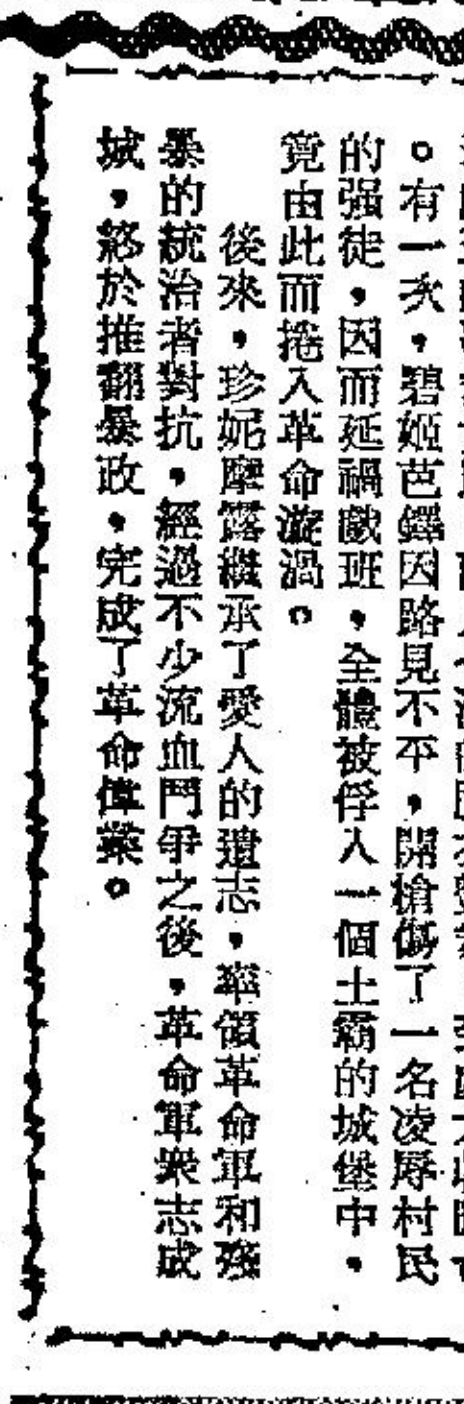 。有一次，碧姬芭鐸因路見不平，開槍傷了一名凌辱村民
的强徒，因而延禍戲班，全體被俘入一個土霸的城堡中，
竟由此而捲入革命漩渦。
後來，珍妮摩露繼承了愛人的遺志，率領革命軍和殘
暴的統治者對抗，經過不少流血鬥爭之後，革命軍衆志成
城，終於推翻暴政，完成了革命偉業。